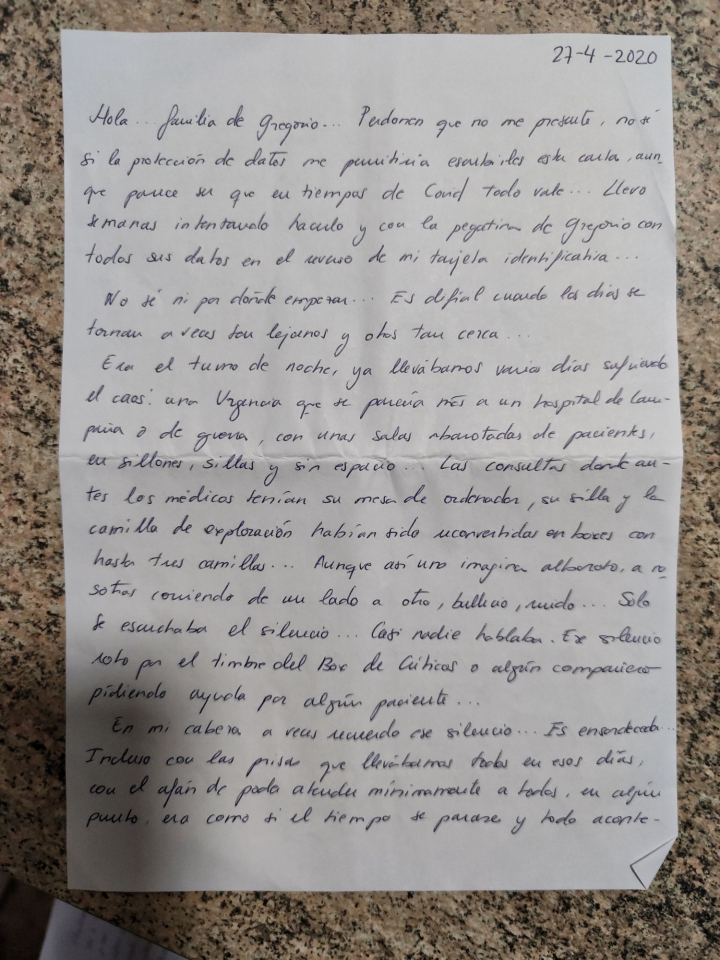 27-4-2020
Hola... familia de Gregorio... Perdonen que no me presente, no sé
si la protección de datos me permitiría escribirles esta carta, aun-
que parece ser que en tiempos de Covid todo vale... Llevo
semanas intentando hacerlo y con la pegatina de Gregorio con
todos sus datos en el reverso de mi tarjeta identificativa...
No sé ni por dónde empezar... Es difícil cuando los días se
tornan a veces tan lejanos y otros tan cerca...
Era el turno de noche, ya llevábamos varios días sufriendo
el caos: una Urgencia que se parecía más a un hospital de cam-
paña o de guerra, con unas salas abarrotadas de pacientes,
en sillones, sillas y sin espacio... Las consultas donde an-
tes los médicos tenían su mesa de ordenador, su silla y la
camilla de exploración habían sido reconvertidas en boxes con
hasta tres camillas... Aunque así uno imagina alboroto, a no
sotros corriendo de un lado a otro, bullicio, ruido... Solo
se escuchaba el silencio... Casi nadie hablaba. Ese silencio
roto por el timbre del Box de Críticos o algún compañero
pidiendo ayuda por algún paciente...
En mi cabeza a veces recuerdo ese silencio... Es ensordecedor...
Incluso con las prisas que llevábamos todos en esos días,
con el afán de poder atender mínimamente a todos, en algún
punto, era como si el tiempo se parase y todo aconte-